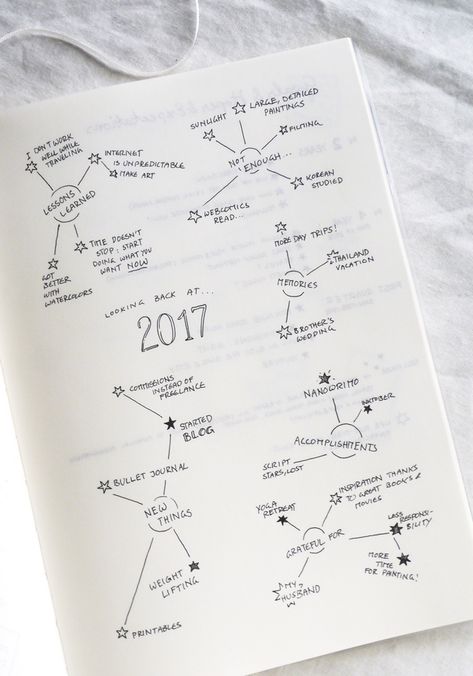 I DON'T WORK
WELL WHILE
TRAVELING
INTERNET
IS UNPREDICTABLE
MAKE ART
LESSONS
LEARNED
TIME DOESN'T
STOP: START
DOING WHAT YOU
WANT NOW
GOT
BETTER
WITH
WATERCOLORS
SUNLIGHT
LARGE, DETAILED
PAINTINGS
FILMING
NOT
ENOUGH...
KOREAN
STUDIED
WEBCOMICS
READ...
MORE DAY TRIPS!
THAILAND
VACATION
MEMORIES
BROTHER'S
WEDDING
LOOKING BACK AT...
2017
COMMISSIONS
INSTEAD OF
FREELANCE
STARTED
BLOG
BULLET JOURNAL
NEW
THINGS
WEIGHT
LIFTING
PRINTABLES
NANOWRIMO
INKTOBER
ACCOMPLISHMENTS
SCRIPT
STARS, LOST
INSPIRATION THANKS
TO GREAT BOOKS &
MOVIES
YOGA
RETREAT
LESS
RESPONSI-
BILITY
GRATEFUL FOR
MORE
TIME
FOR PAINTING!
MY
HUSBAND